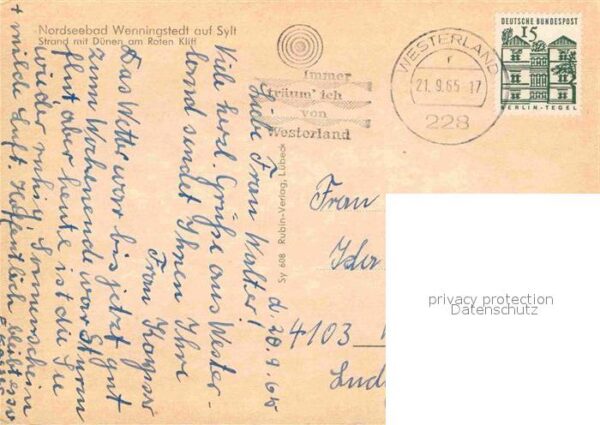 Nordseebad Wenningstedt auf Sylt
Strand mit Dünen am Roten Kliff
Immer
träum' ich
von
Westerland
WESTERLAND
f
21. 9. 65 17
228
DEUTSCHE BUNDESPOST
15
BERLIN-TEGEL
Sy 608 Rubin-Verlag, Lübeck
d. 20.9.65
Liebe Frau Walter!
Viele herzl. Grüße aus Wester-
land sendet Ihnen Ihre
Frau
Das Wetter war bis jetzt gut
zum Wochenende war Sturm
flut aber heute ist die See
wieder ruhig, Sonnenschein
+ milde Luft. Hoffentlich bleibt es so
Frau
4103
privacy protection
Datenschutz